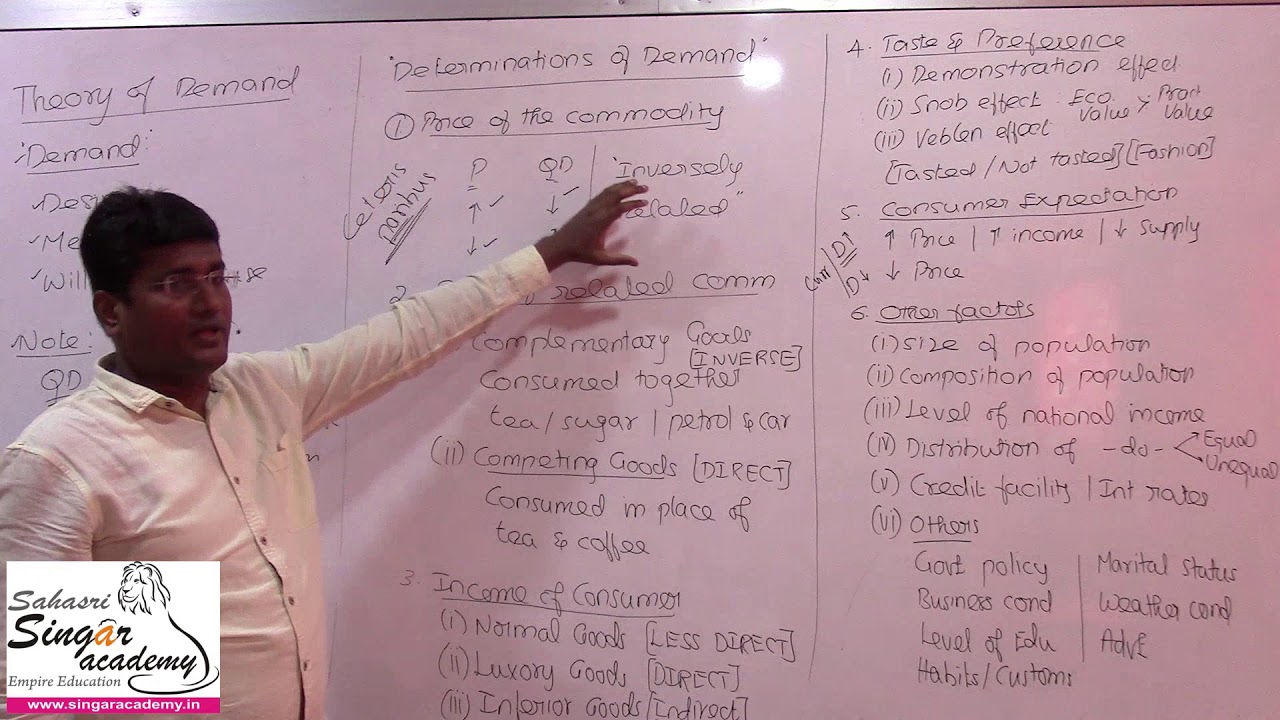 Theory of Demand
Demand:
Note:
QD
"Determinations of Demand"
① Price of the commodity
Ceteris Paribus
P QD "Inversely
↑ ✓ ↓ ✓ related"
↓ ✓
2. related comm
Complementary Goods
[INVERSE]
Consumed together
tea/sugar | petrol & car
(ii) Competing Goods [DIRECT]
Consumed in place of
tea & coffee
3. Income of Consumer
(i) Normal Goods [LESS DIRECT]
(ii) Luxory Goods [DIRECT]
(iii) Inferior Goods [Indirect]
4. Taste & Preference
(i) Demonstration effect
(ii) Snob effect : Eco. Value > Pract Value
(iii) Veblen effect
[Tasted / Not tasted] [Fashion]
5. Consumer Expectation
↑ Price | ↑ income | ↓ Supply
D↑
D↓ ↓ Price
6. Other factors
(i) Size of population
(ii) composition of population
(iii) Level of national income
(iv) Distribution of -do- Equal
Unequal
(v) Credit facility | Int rates
(vi) Others
Govt policy | Marital status
Business cond | Weather cond
Level of Edu | Advt
Habits/Customs
Sahasri
Singar
academy
Empire Education
www.singaracademy.in